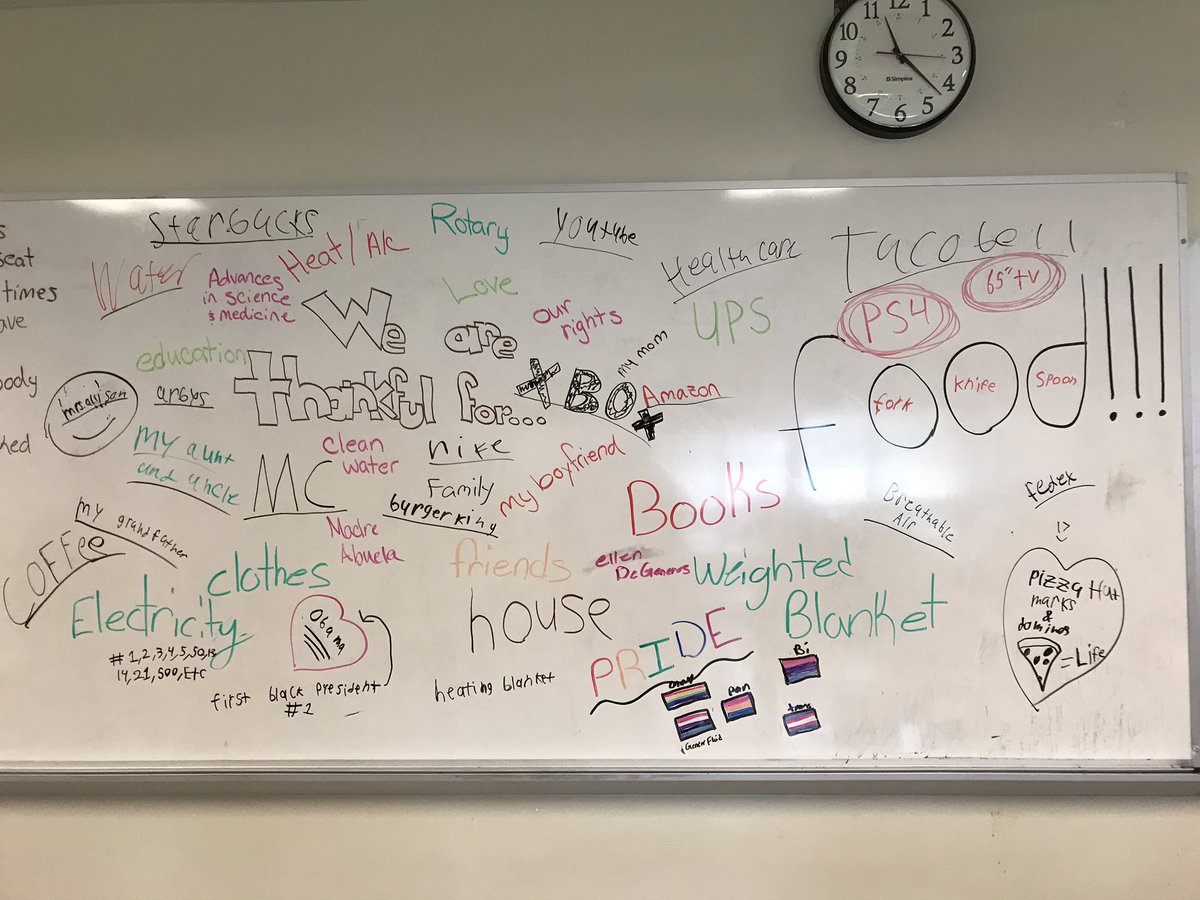 11 12 1
10 2
9 3
8 4
7 6 5
Simplex
seat
times
ave
body
ked
Starbucks
Rotary
Youtube
Heat/AC
Water
Advances
in science
& medicine
Love
our
rights
Healthcare
UPS
Tacobell
PS4
65"tv
We are
thankful for...
education
arbys
my mom
Amazon
food!!!!
fork
knife
spoon
my aunt
and uncle
MC
clean
water
nike
Family
burgerking
my boyfriend
Books
Breathable
Air
fedex
my grandfather
COFFee
Madre
Abuela
clothes
friends
ellen
DeGeneres
Weighted
Blanket
Electricity
#1,2,3,4,5,50,13
14,21,500,Etc
Obama
first black president
#1
house
heating blanket
PRIDE
Bi
Pan
trans
Pizza Hut
marks
&
dominos
=Life